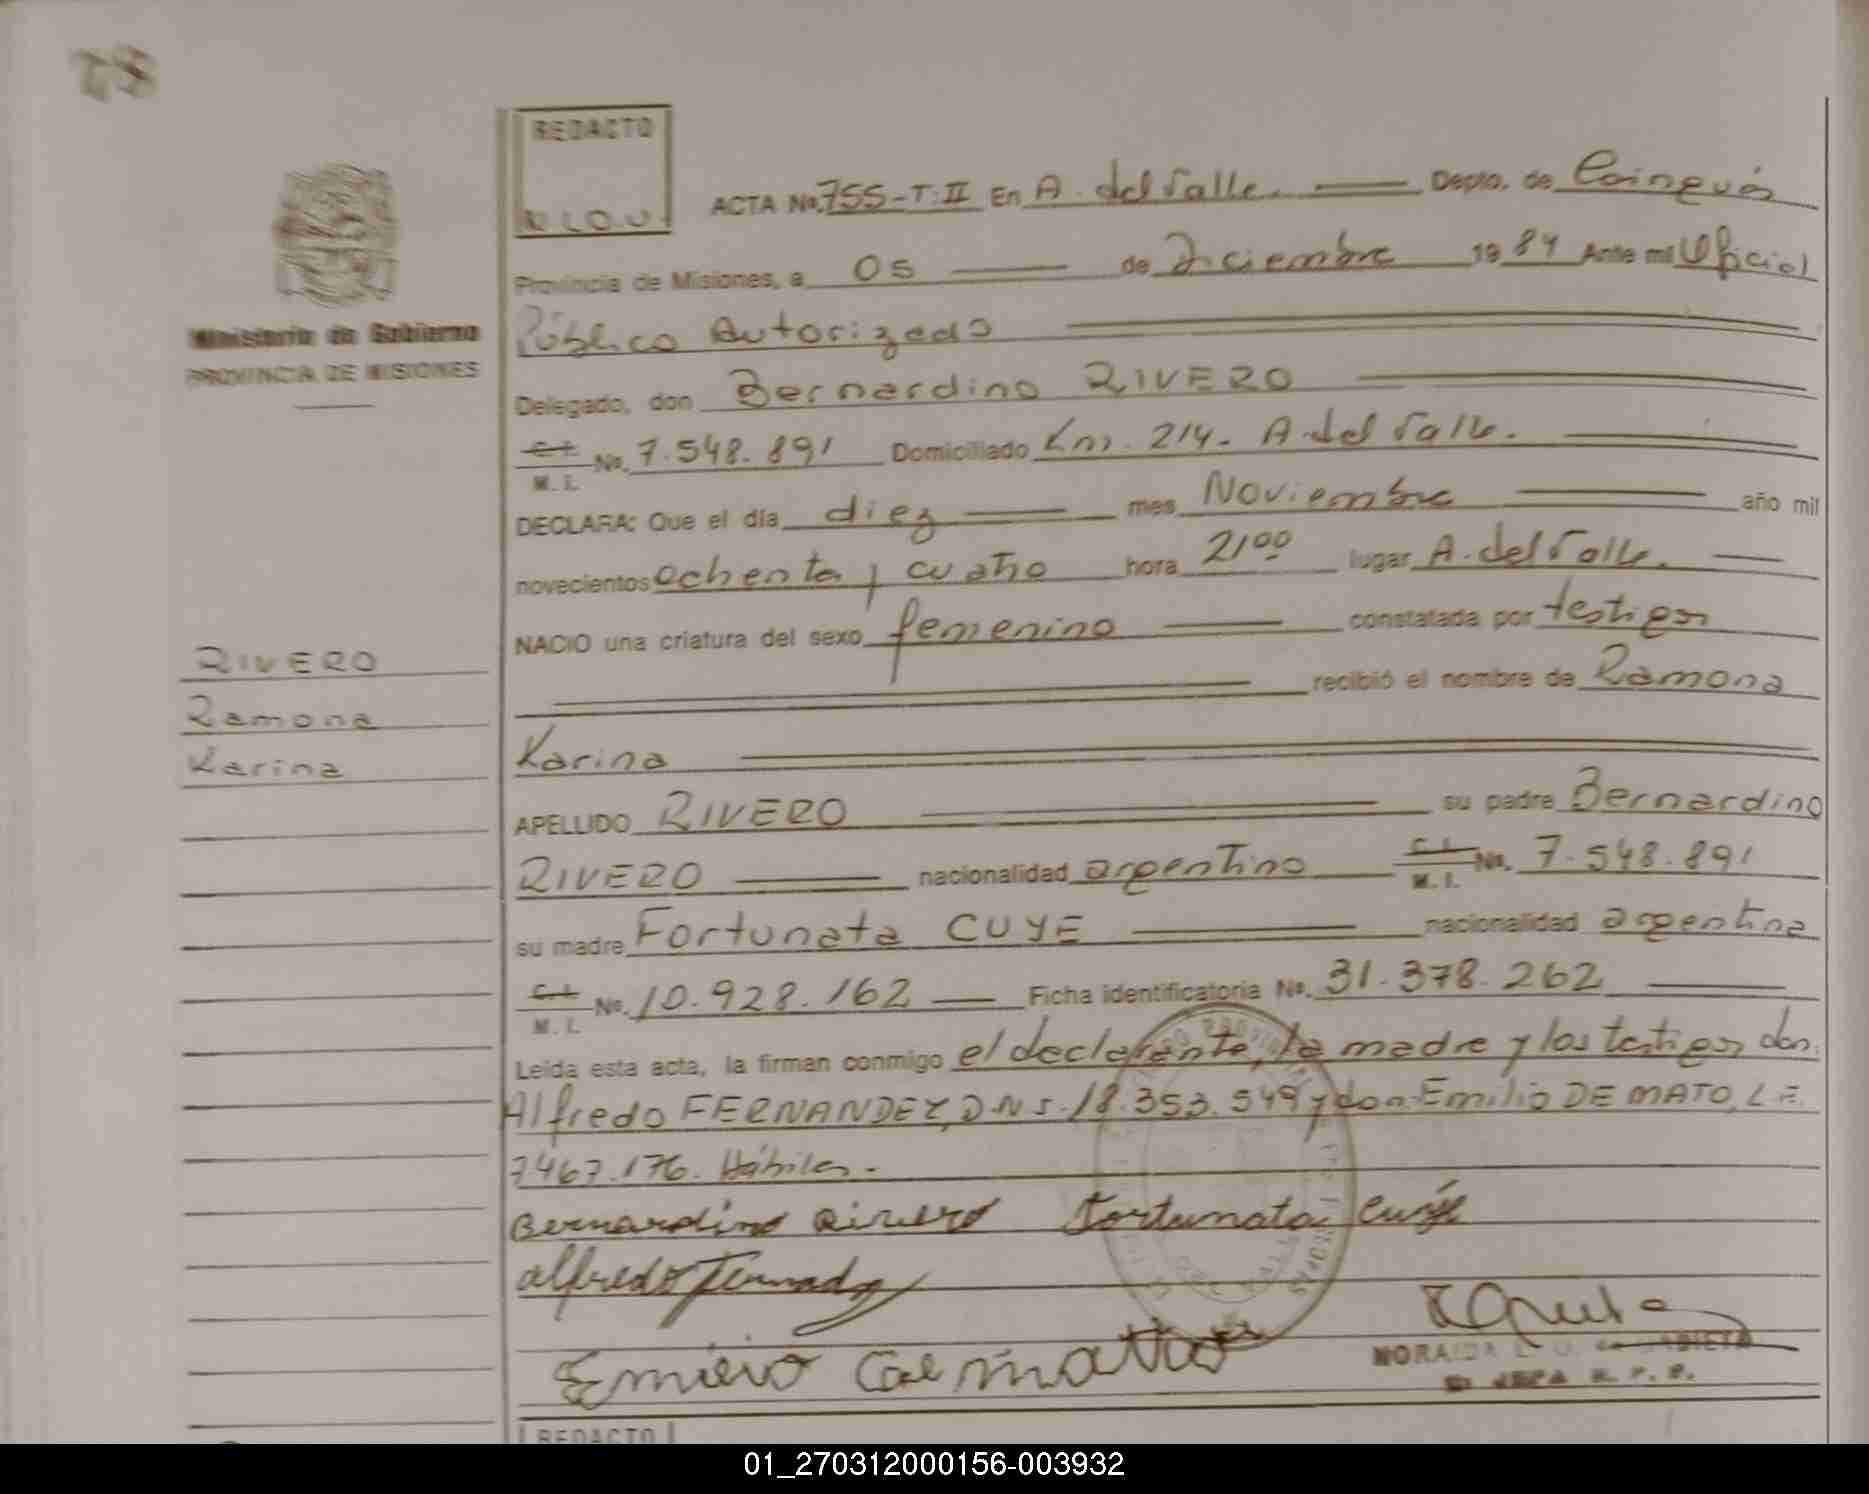 REDACTO
N.L.O.U.
ACTA No. 755-T:II En A. del Valle. Depto. de Cainguás
Provincia de Misiones, a 05 de Diciembre 1984 Ante mi Oficial
Público Autorizado
Ministerio de Gobierno
PROVINCIA DE MISIONES
Delegado, don Bernardino RIVERO
C.I. M.I. No. 7.548.891 Domiciliado Km. 214. A. del Valle.
DECLARA: Que el día diez mes Noviembre año mil
novecientos ochenta y cuatro hora 21 00 lugar A. del Valle.
NACIO una criatura del sexo femenino constatada por testigos
RIVERO
recibió el nombre de Ramona
Ramona
Karina
Karina
APELLIDO RIVERO su padre Bernardino
RIVERO nacionalidad argentino C.I. M.I. No. 7.548.891
su madre Fortunata CUYE nacionalidad argentina
C.I. M.I. No. 10.928.162 Ficha identificatoria No. 31.378.262
Leída esta acta, la firman conmigo el declarante, la madre y los testigos don
Alfredo FERNANDEZ, D.N.I. 18.353.549 y don Emilio DE MATO, L.E.
7467.176. Hábiles.
Bernardino Rivero Fortunata Cuye
Alfredo Fernandez
Emilio
NORAIDA
REDACTO
01_270312000156-003932